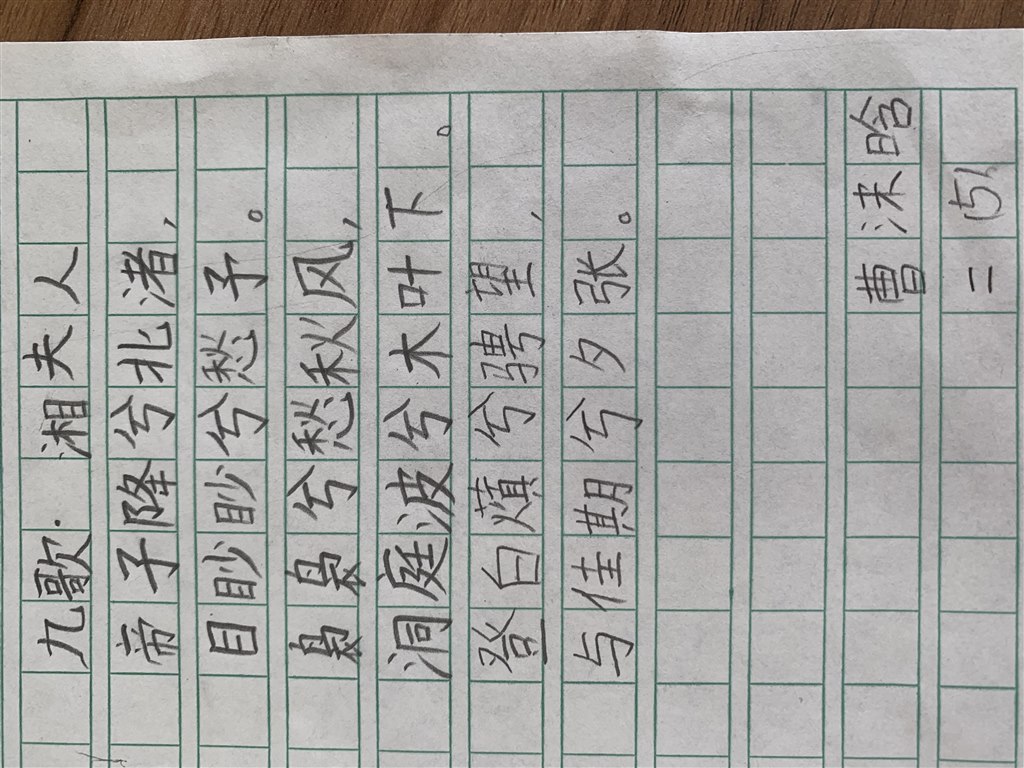 九歌·湘夫人
帝子降兮北渚,
目眇眇兮愁予。
袅袅兮愁秋风,
洞庭波兮木叶下。
登白薠兮骋望,
与佳期兮夕张。
曹沫晗
二(5)